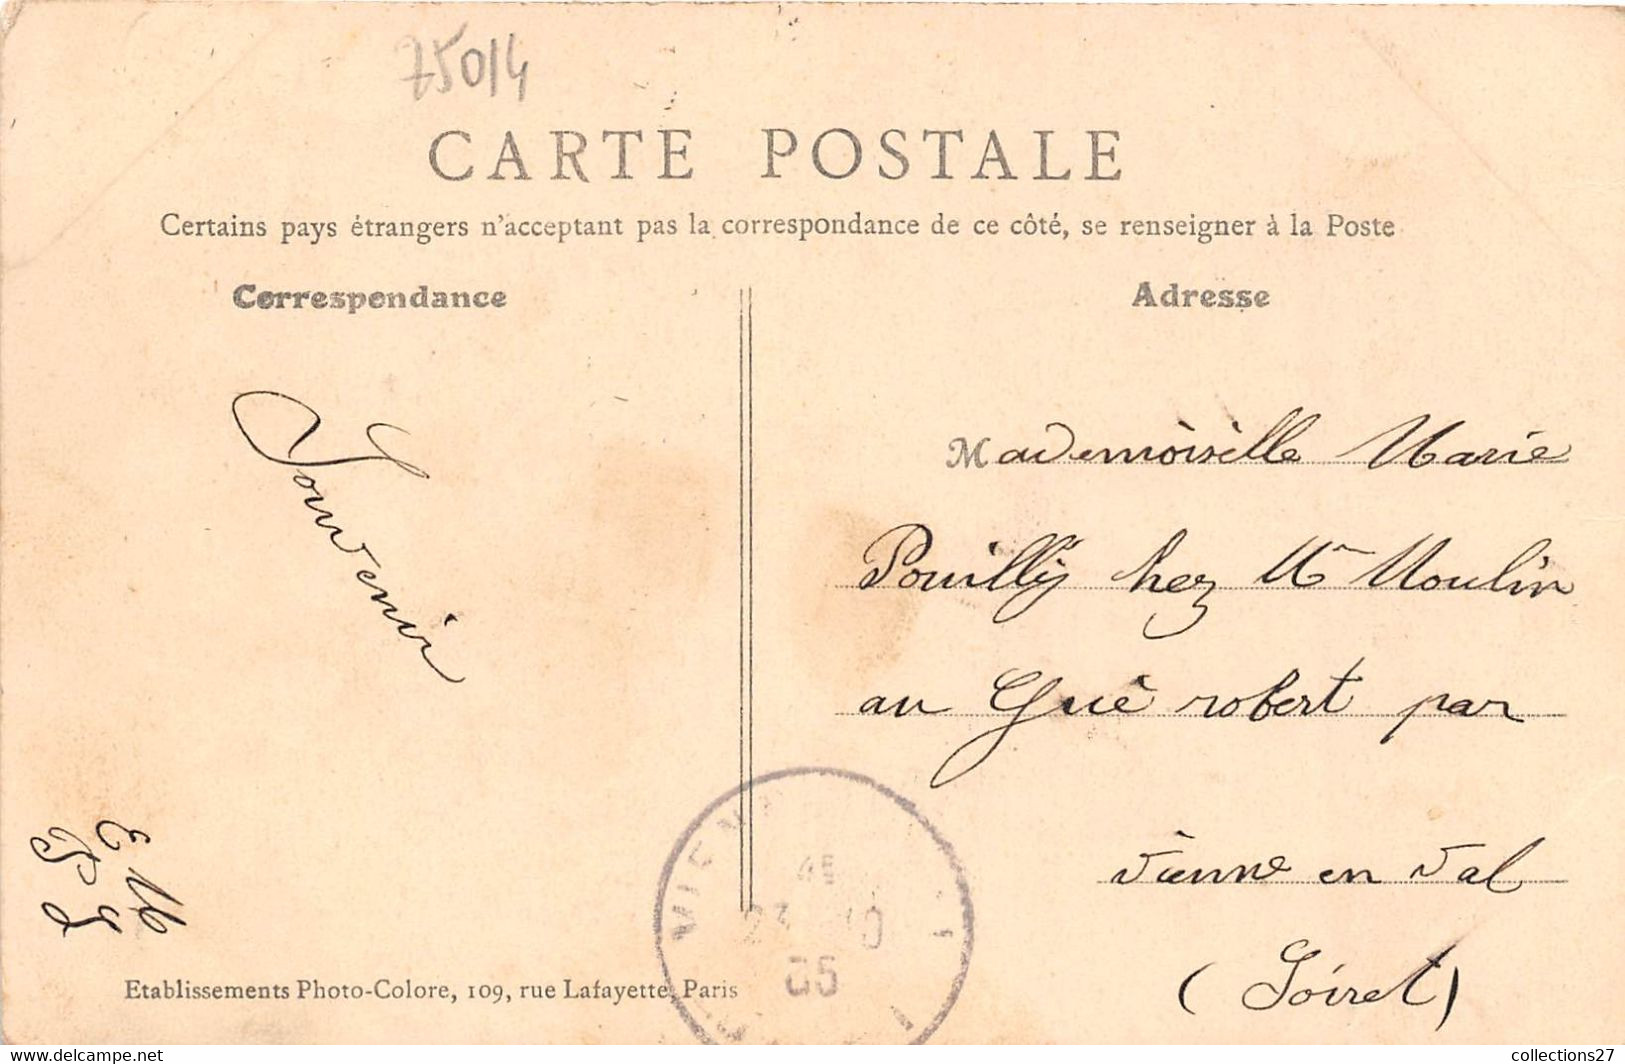 75014
CARTE POSTALE
Certains pays étrangers n'acceptant pas la correspondance de ce côté, se renseigner à la Poste
Correspondance
Adresse
Souvenir
Mademoiselle Marie
Pouilly chez Mr Moulin
au Gué robert par
vienne en val
(Loiret)
E M
P S
23 10
05
Etablissements Photo-Colore, 109, rue Lafayette, Paris
collections27